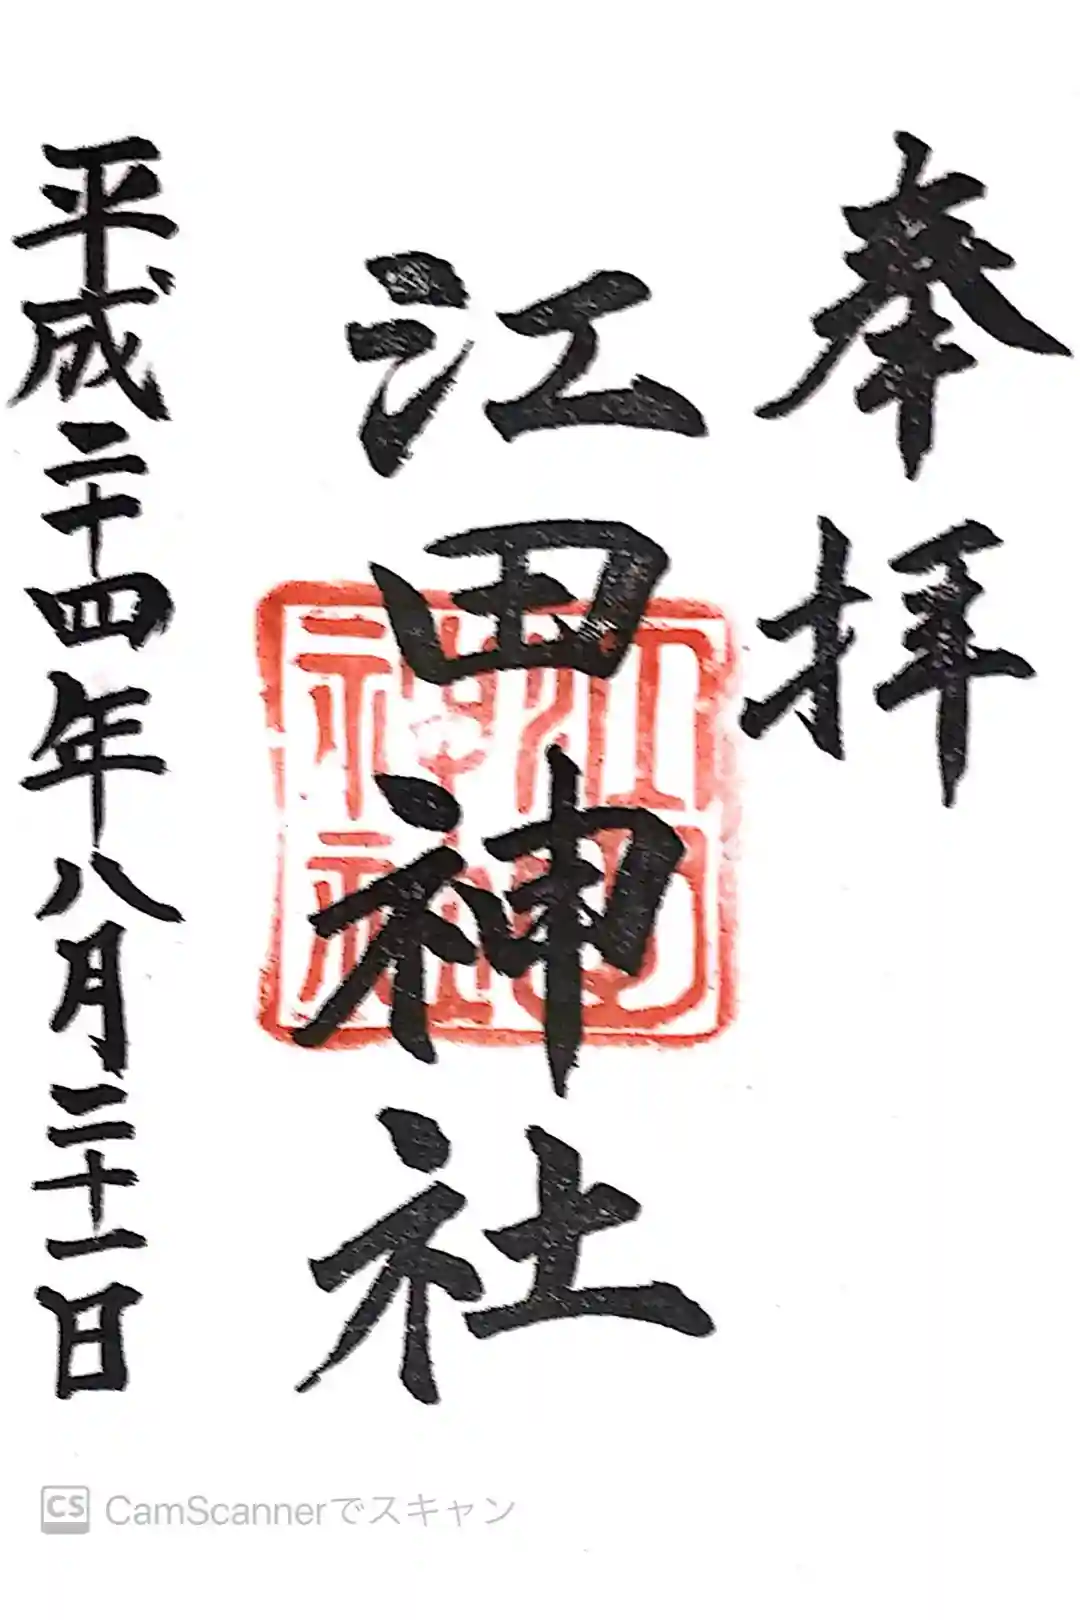 奉拝
江田神社
江田神社
平成二十四年八月二十一日
CS CamScannerでスキャン